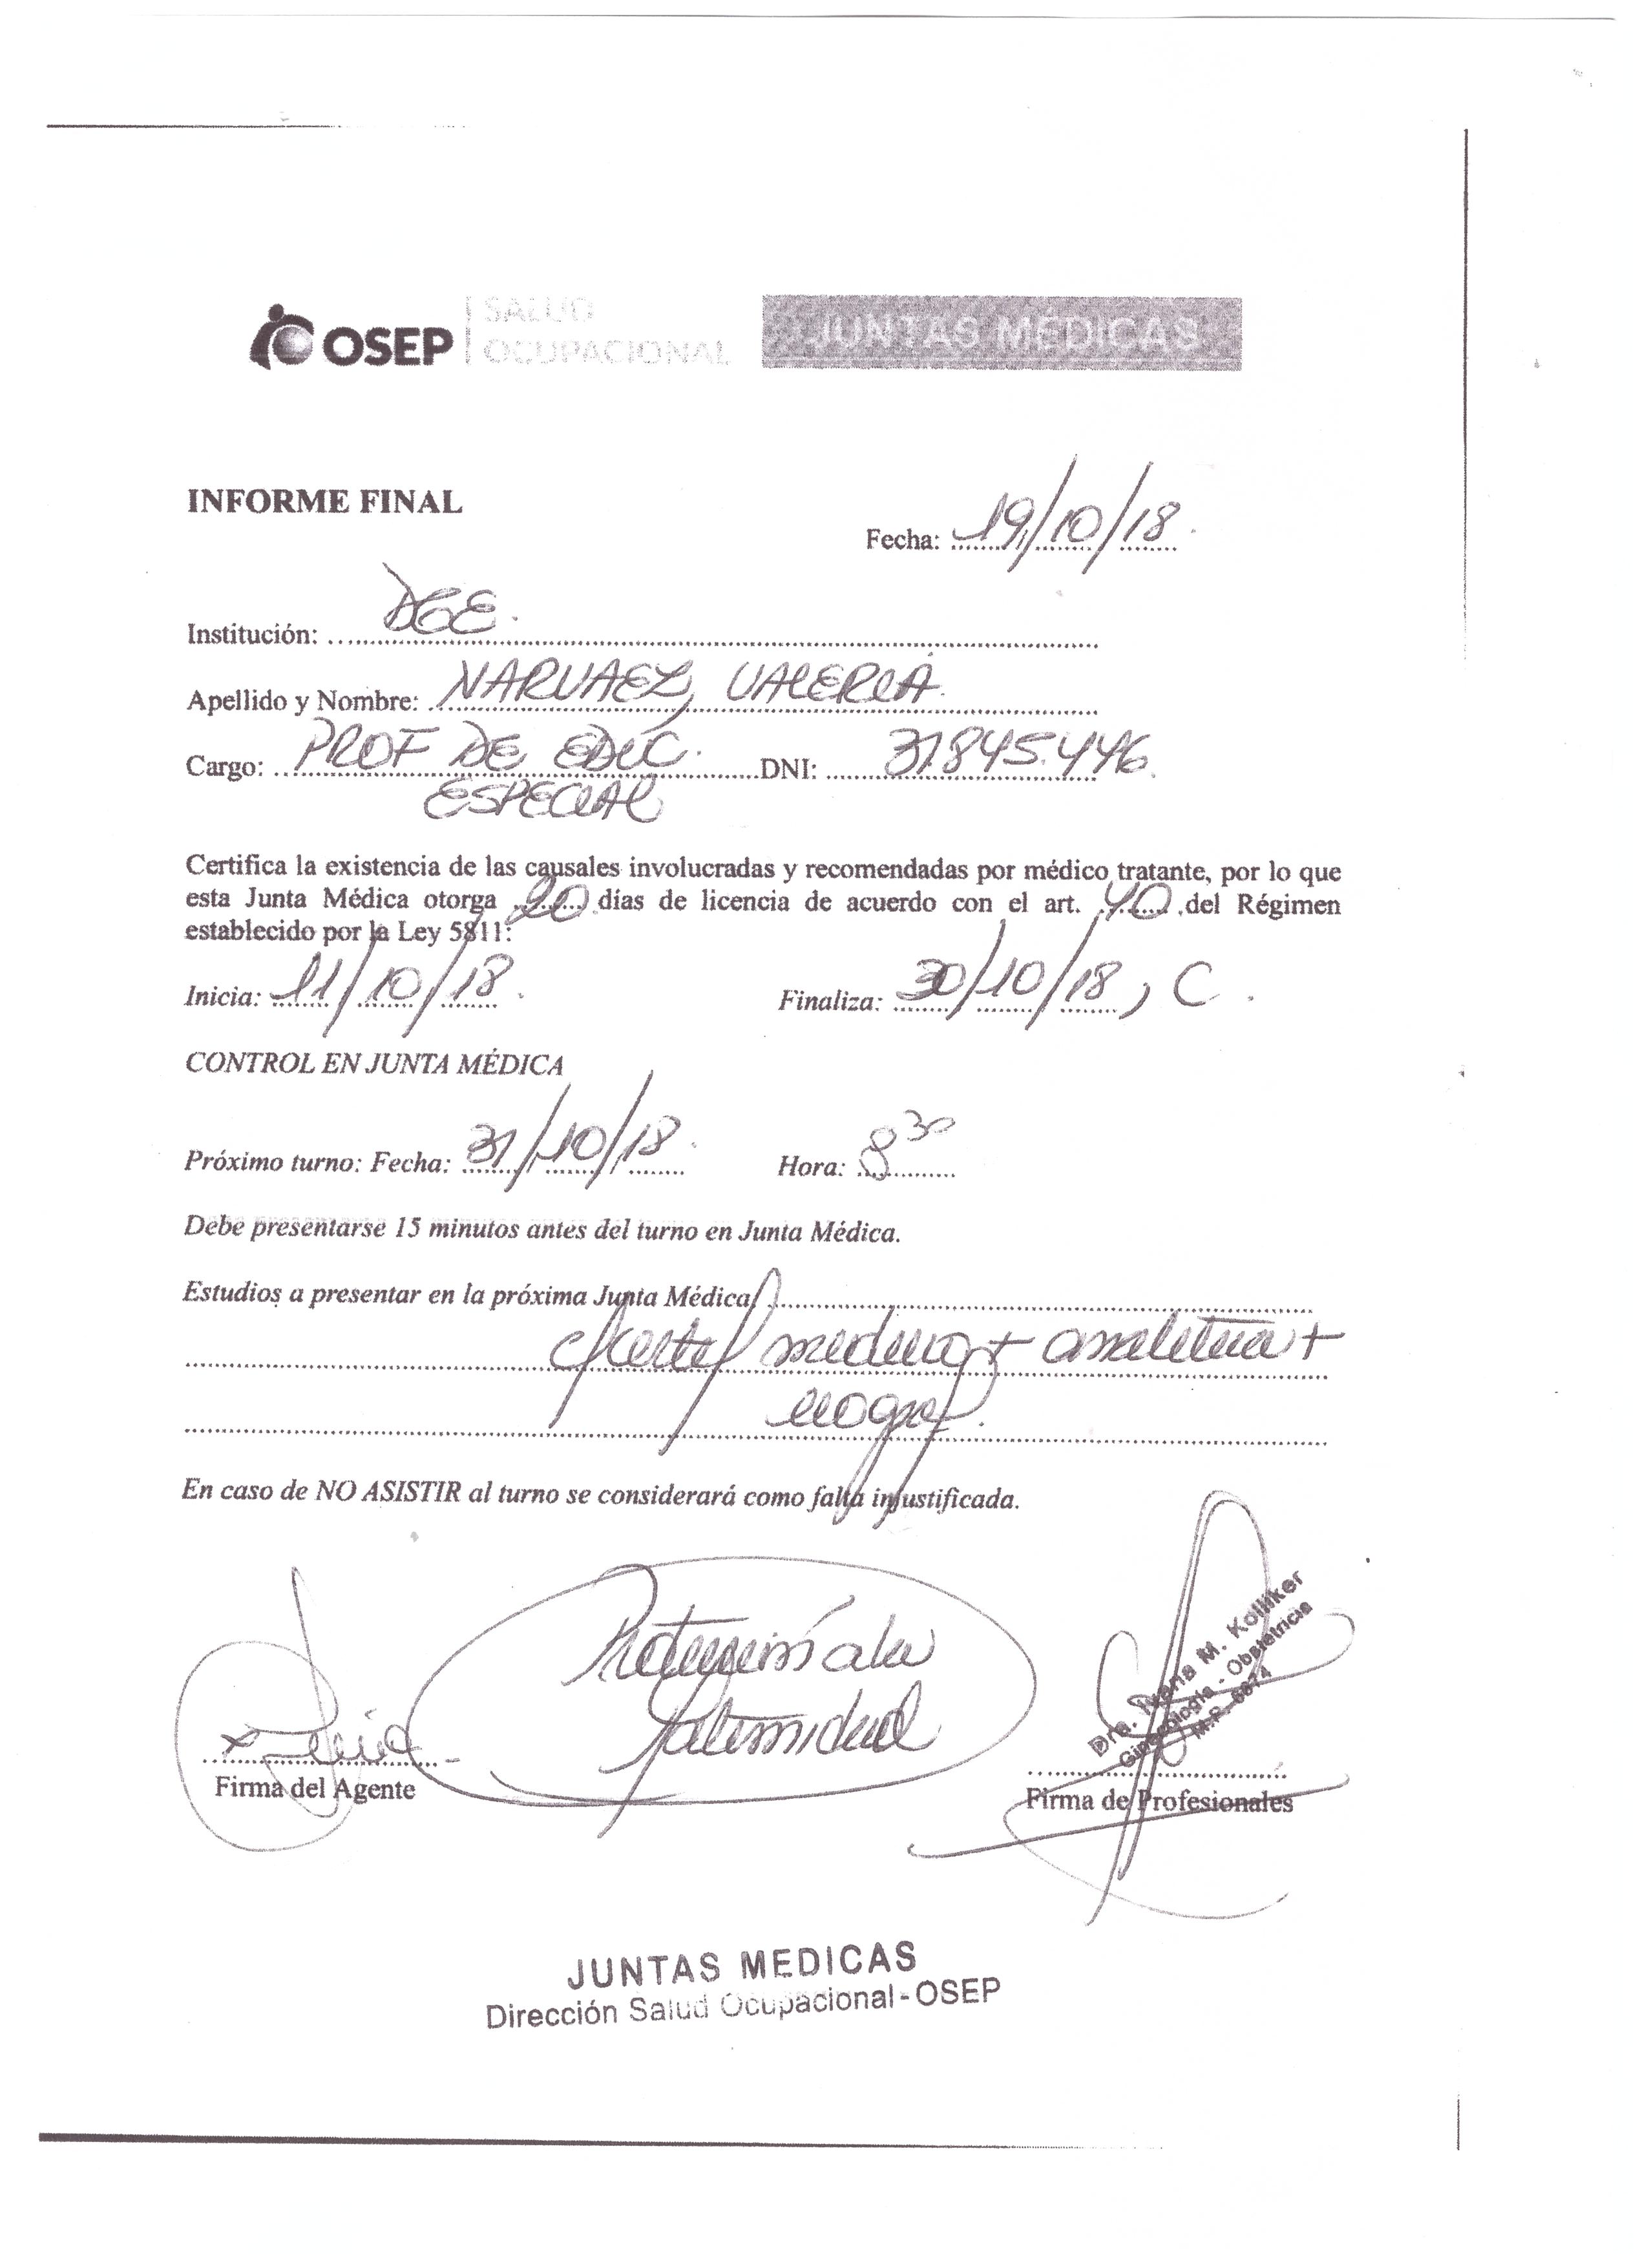 OSEP SALUD OCUPACIONAL JUNTAS MÉDICAS
INFORME FINAL
Fecha: 19/10/18.
Institución: DGE.
Apellido y Nombre: NARVAEZ, VALERIA.
Cargo: PROF DE EDUC. DNI: 31.845.446.
ESPECIAL
Certifica la existencia de las causales involucradas y recomendadas por médico tratante, por lo que
esta Junta Médica otorga 20 días de licencia de acuerdo con el art. 40 del Régimen
establecido por la Ley 5811:
Inicia: 11/10/18. Finaliza: 30/10/18, C.
CONTROL EN JUNTA MÉDICA
Próximo turno: Fecha: 31/10/18. Hora: 8 30
Debe presentarse 15 minutos antes del turno en Junta Médica.
Estudios a presentar en la próxima Junta Médica
c/certif medico + analitica +
ecograf.
En caso de NO ASISTIR al turno se considerará como falta injustificada.
a la
Firma del Agente
Dra. M. Kolliker
Ginecología - Obstetricia
M.P. 6674
Firma de Profesionales
JUNTAS MEDICAS
Dirección Salud Ocupacional - OSEP